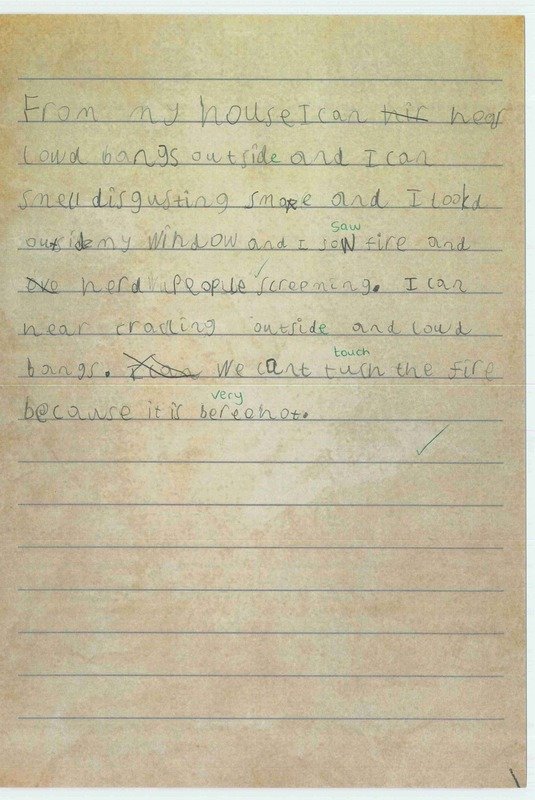 From my house I can hir hear
lowd bangs outside and I can
smell disgusting smoke and I lookd
outside my window and I soW saw fire and
herd People screeming. I can
hear cracling outside and lowd
bangs. I can We cant tuch touch the fire
because it is bereehot. very